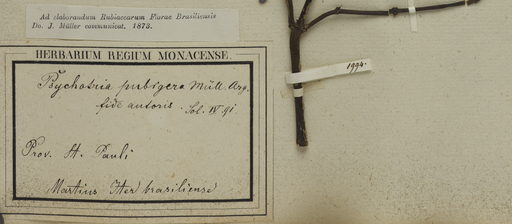 Ad elaborandum Rubiacearum Florae Brasiliensis
Do. J. Müller communicat. 1873.
HERBARIUM REGIUM MONACENSE.
1994.
Psychotria pubigera Müll. Arg.
fide autoris. Sol. IV. 91
Prov. St. Pauli
Martius Iter brasiliense